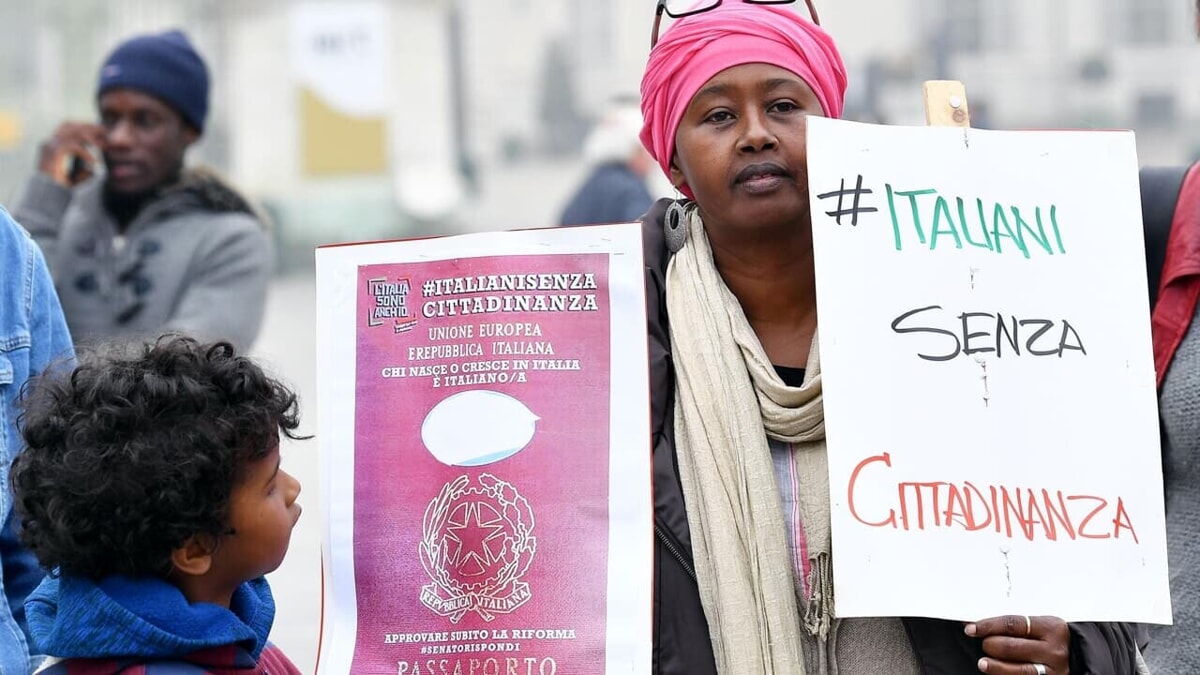 L'ITALIA
SONO
ANCH'IO
#ITALIANISENZA
CITTADINANZA
UNIONE EUROPEA
EREPUBBLICA ITALIANA
CHI NASCE O CRESCE IN ITALIA
È ITALIANO/A
REPUBBLICA ITALIANA
APPROVARE SUBITO LA RIFORMA
#SENATORISPONDI
PASSAPORTO
#ITALIANI
SENZA
CITTADINANZA